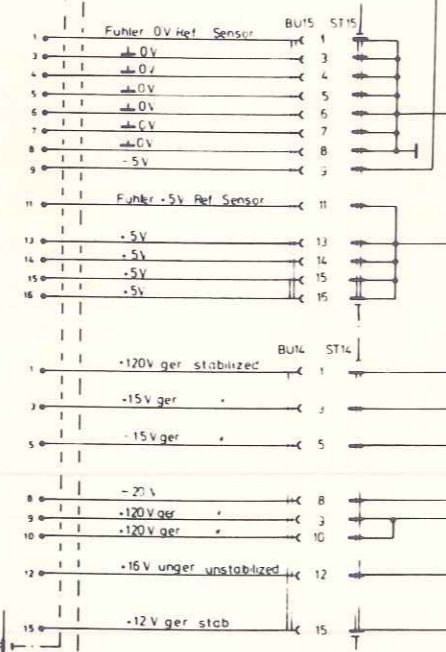 BU15 ST15
1 Fuhler 0V Ref Sensor 1
3 0V 3
4 0V 4
5 0V 5
6 0V 6
7 0V 7
8 0V 8
9 -5V 9
11 Fuhler +5V Ref Sensor 11
13 +5V 13
14 +5V 14
15 +5V 15
16 +5V 16
BU14 ST14
1 +120V ger stabilized 1
3 +15V ger " 3
5 -15V ger " 5
8 8
9 +120V ger " 9
10 +120V ger " 10
12 +16V unger unstabilized 12
15 +12V ger stab 15